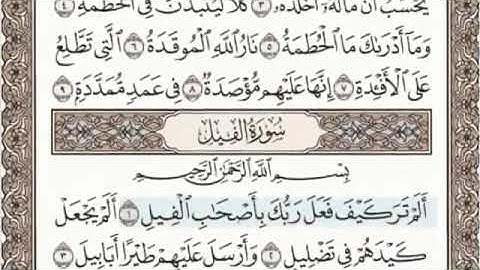 يَحْسَبُ أَنَّ مَالَهُۥٓ أَخْلَدَهُۥ ٣ كَلَّا لَيُنۢبَذَنَّ فِي ٱلْحُطَمَةِ ٤
وَمَآ أَدْرَىٰكَ مَا ٱلْحُطَمَةُ ٥ نَارُ ٱللَّهِ ٱلْمُوقَدَةُ ٦ ٱلَّتِي تَطَّلِعُ
عَلَى ٱلْأَفْـِٔدَةِ ٧ إِنَّهَا عَلَيْهِم مُّؤْصَدَةٌ ٨ فِي عَمَدٍ مُّمَدَّدَةٍۭ ٩
سُورَةُ الفِيلِ
بِسْمِ ٱللَّهِ ٱلرَّحْمَٰنِ ٱلرَّحِيمِ
أَلَمْ تَرَ كَيْفَ فَعَلَ رَبُّكَ بِأَصْحَٰبِ ٱلْفِيلِ ١ أَلَمْ يَجْعَلْ
كَيْدَهُمْ فِي تَضْلِيلٍ ٢ وَأَرْسَلَ عَلَيْهِمْ طَيْرًا أَبَابِيلَ ٣